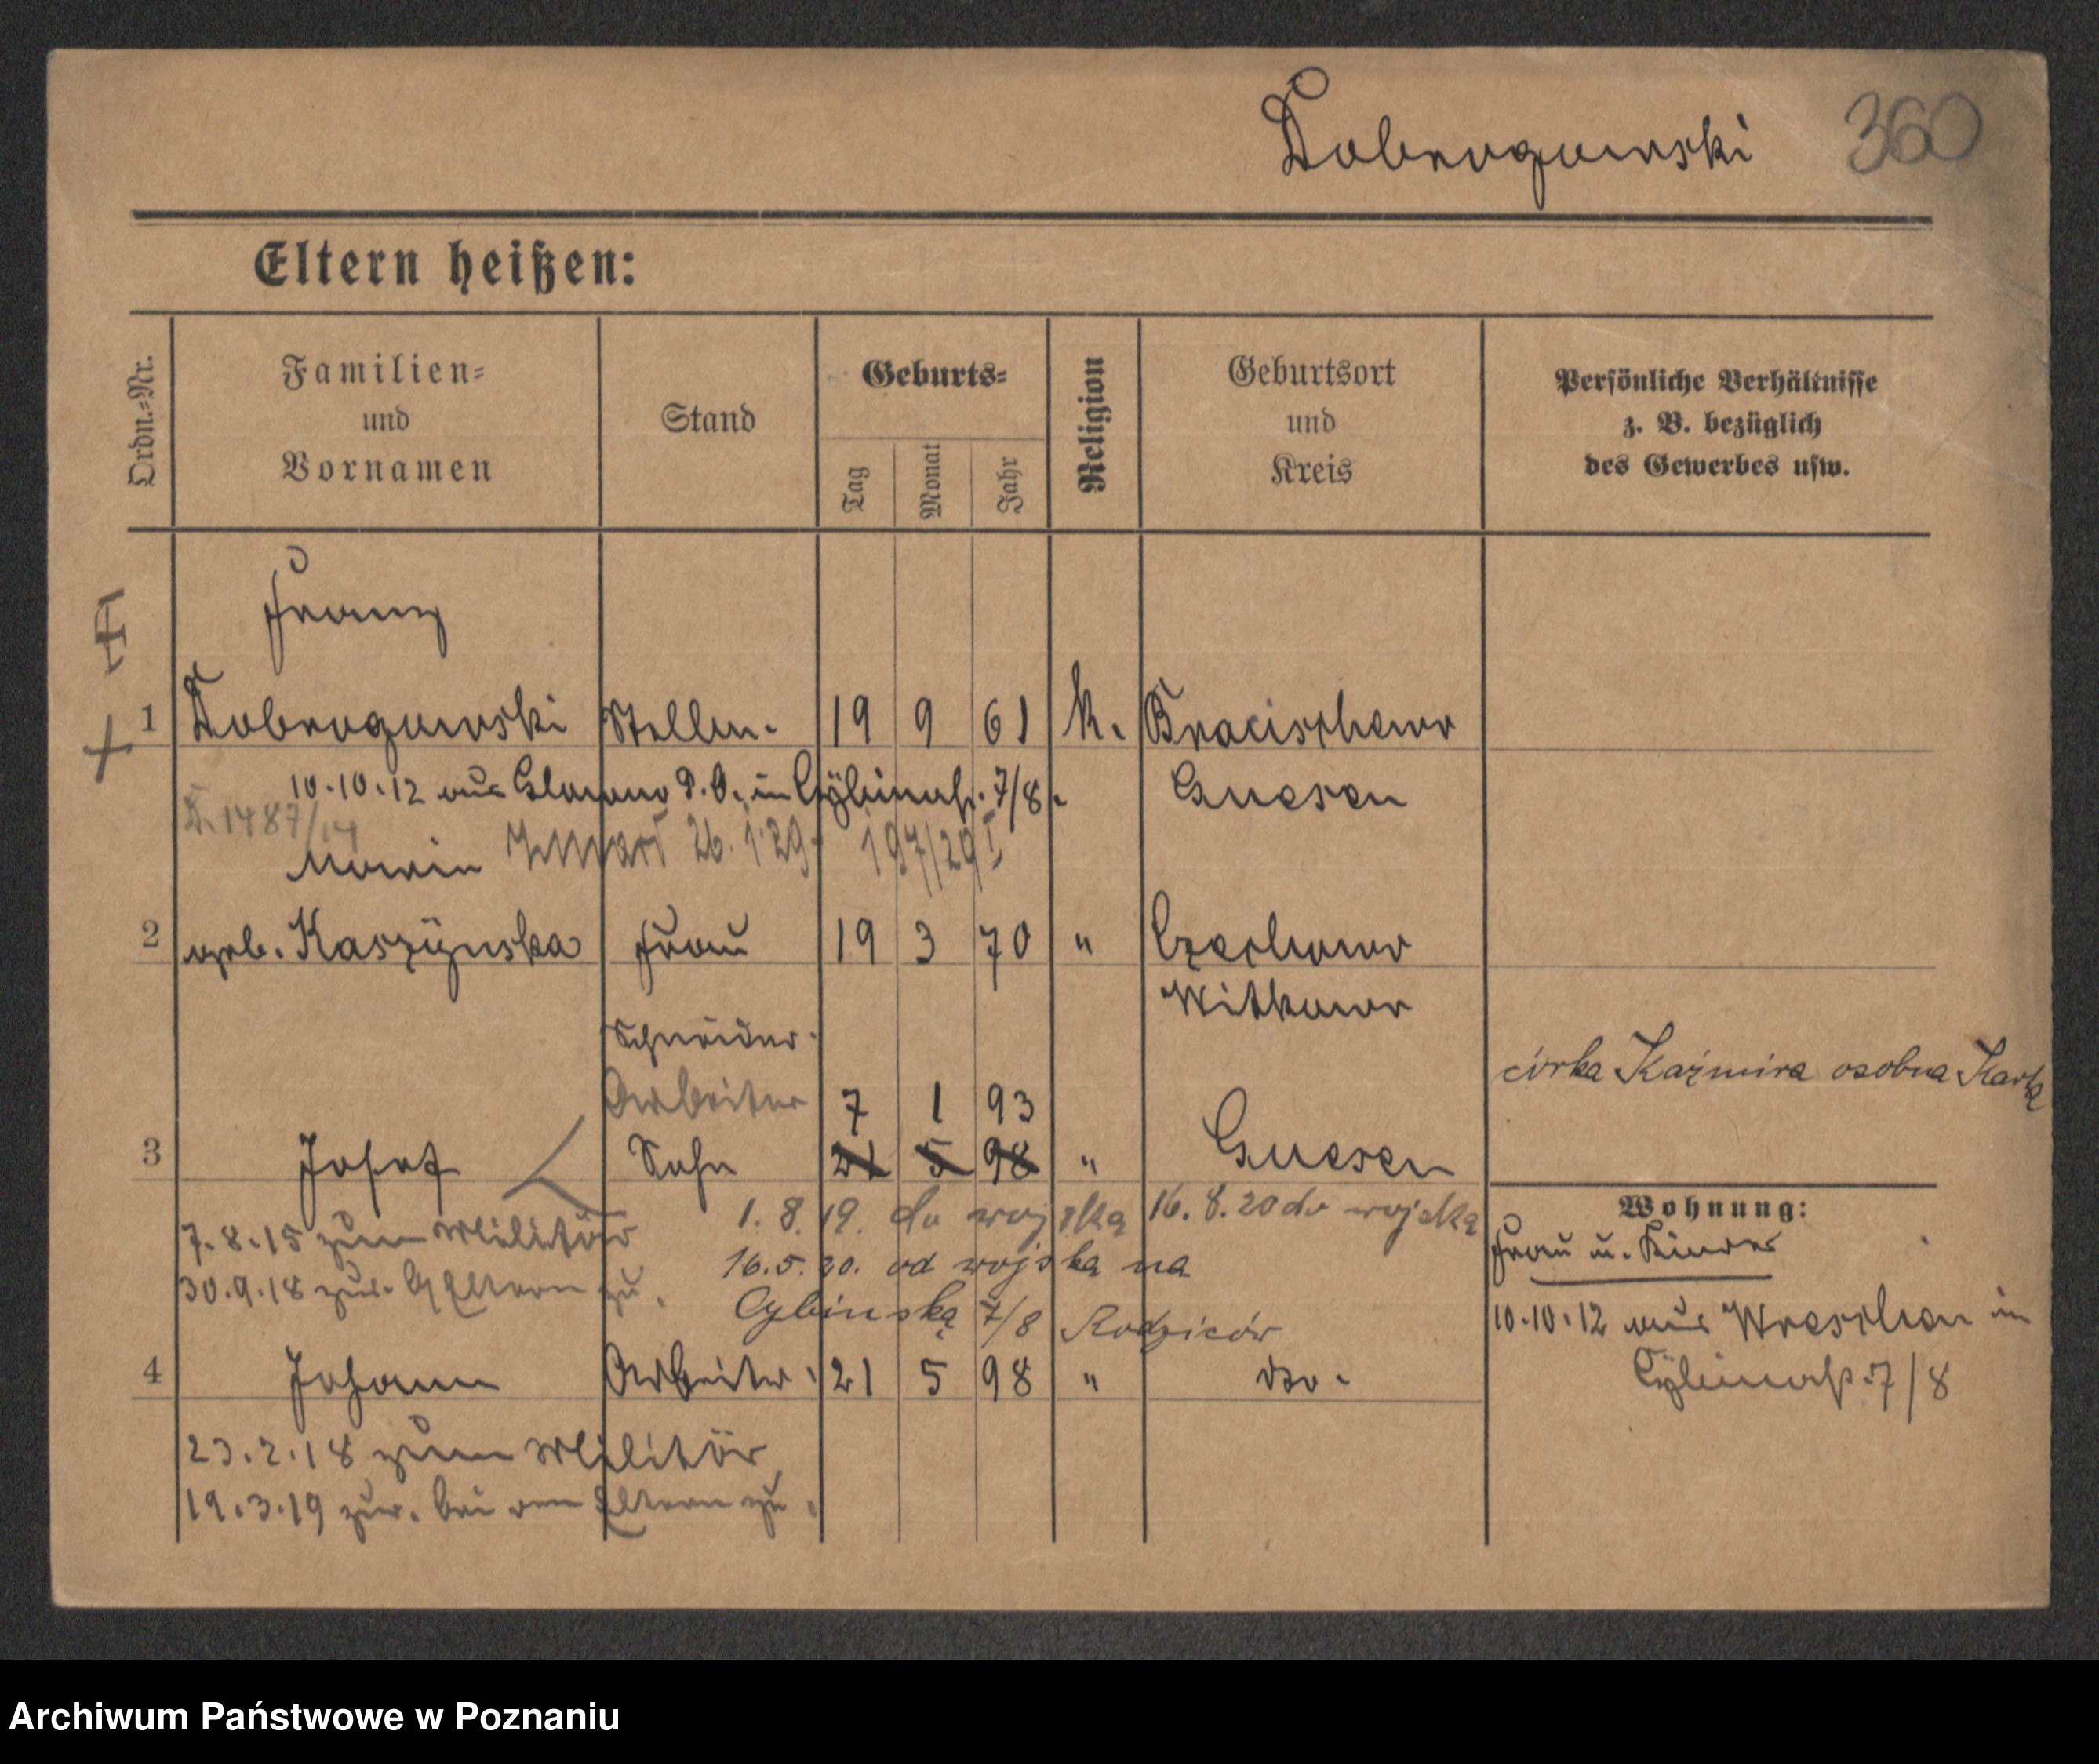 Dobrogowski 360
Eltern heißen:
Ordn.-Nr.
Familien-
und
Vornamen
Stand
Geburts-
Tag
Monat
Jahr
Religion
Geburtsort
und
Kreis
Persönliche Verhältnisse
z. B. bezüglich
des Gewerbes usw.
Franz
1 Dobrogowski Stellm. 19 9 61 k. Bracischewo
10.10.12 aus Glowno P. O. in Cÿbinastr. 7/8. Gnesen
1487/14
Maria Zmarł 26.1.29. 197/29 I
2 geb. Kaszÿnska Frau 19 3 70 " Czechowo
Witkowo
Schneider.
Arbeiter 7 1 93
córka Kaźmira osobna Kartą
3 Josef Sohn 21 5 98 " Gnesen
7.8.15 zum Militär 1.8.19. do wojska 16.8.20 do wojska
30.9.18 zur. Eltern zu. 16.5.20. od wojska na
Cybinską 7/8 Rodziców
Wohnung:
Frau u. Kinder
10.10.12 aus Wreschen in
Cÿbinastr. 7/8
4 Johann Arbeiter. 21 5 98 " do.
23.2.18 zum Militär
19.3.19 zur. bei den Eltern zu.
Archiwum Państwowe w Poznaniu